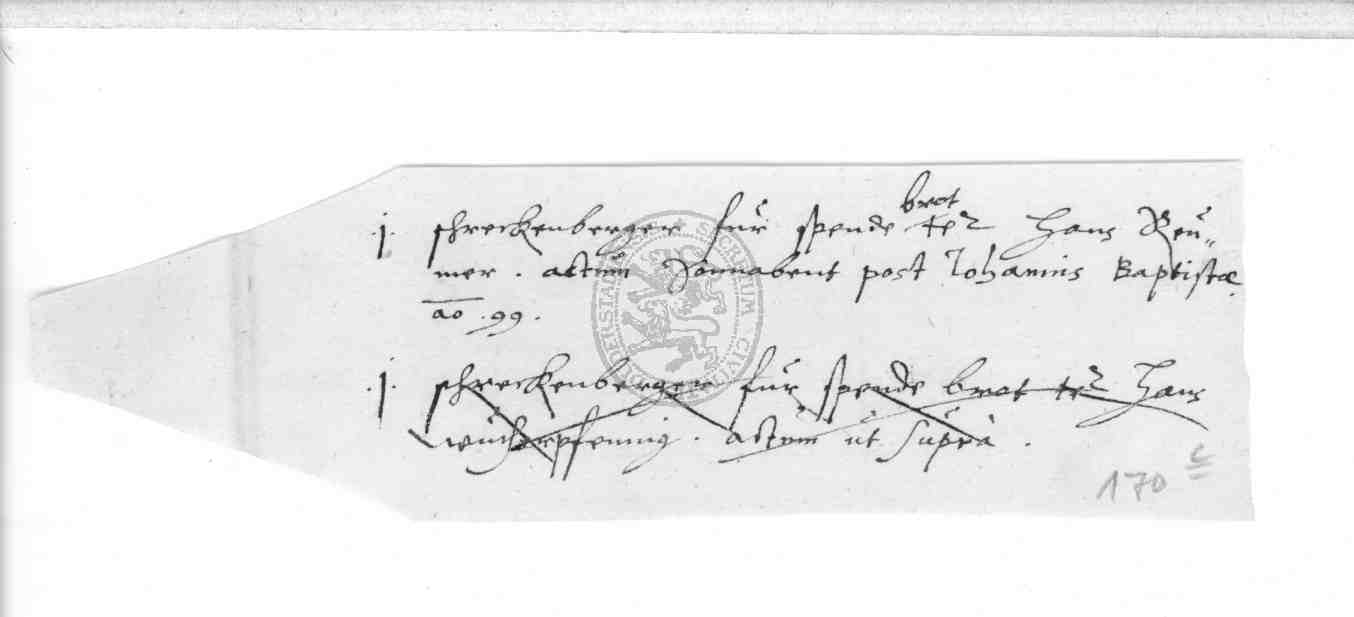 .j. schreckenberger für spende brot ter Hans Reü„
mer . actum Sonnabent post Johannis Baptistæ
ao .99.
.j. schreckenberger für spende brot ter Hans
wücherpfennig . actum üt süprà .
170 c